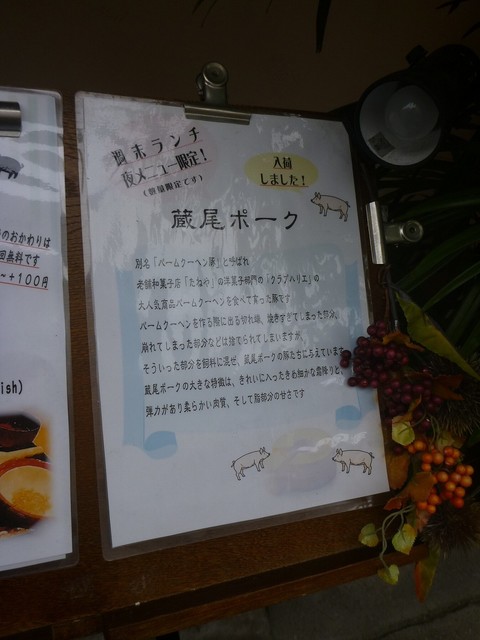 週末ランチ
夜メニュー限定！
（数量限定です）
入荷
しました！
蔵尾ポーク
別名「バームクーヘン豚」と呼ばれ
老舗和菓子店「たねや」の洋菓子部門の「クラブハリエ」の
大人気商品バームクーヘンを食べて育った豚です
バームクーヘンを作る際に出る切れ端、焼きすぎてしまった部分、
崩れてしまった部分などは捨てられてしまいますが、
そういった部分を飼料に混ぜ、蔵尾ポークの豚たちに与えています
蔵尾ポークの大きな特徴は、きれいに入ったきめ細かな霜降りと、
弾力があり柔らかい肉質、そして脂部分の甘さです
のおかわりは
回無料です
～＋100円
ish)